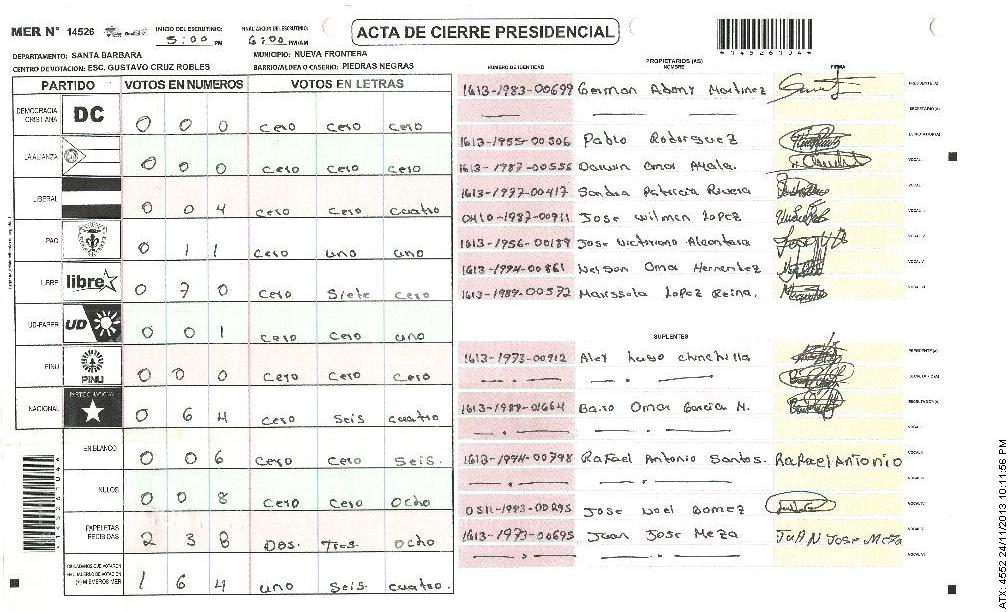 MER N° 14526
INICIO DEL ESCRUTINIO: 5:00 PM
FINALIZACION DEL ESCRUTINIO: 6:00 PM/AM
ACTA DE CIERRE PRESIDENCIAL
DEPARTAMENTO: SANTA BARBARA
MUNICIPIO: NUEVA FRONTERA
CENTRO DE VOTACION: ESC. GUSTAVO CRUZ ROBLES
BARRIO/ALDEA O CASERIO: PIEDRAS NEGRAS
PARTIDO VOTOS EN NUMEROS VOTOS EN LETRAS
DEMOCRACIA CRISTIANA DC 0 0 0 cero cero cero
LA ALIANZA 0 0 0 cero cero cero
LIBERAL 0 0 4 cero cero cuatro
PAC 0 1 1 cero uno uno
LIBRE libre 0 7 0 cero Siete cero
UD-FAPER UD 0 0 1 cero cero uno
PINU PINU 0 0 0 cero cero cero
NACIONAL PARTIDO NACIONAL 0 6 4 cero Seis cuatro
EN BLANCO 0 0 6 cero cero Seis.
NULOS 0 0 8 cero cero Ocho
PAPELETAS RECIBIDAS 2 3 8 Dos. Tres. Ocho
CIUDADANOS QUE VOTARON
(+) MIEMBROS MER 1 6 4 uno Seis. cuatro.
NUMERO DE IDENTIDAD
PROPIETARIOS (AS)
NOMBRE
FIRMA
1613-1983-00699 German Adony Martinez PRESIDENTE (A)
SECRETARIO (A)
1613-1955-00506 Pablo Rodriguez ESCRUTADOR (A)
1613-1987-00556 Darwin Omar Ayala. VOCAL I
1613-1997-00417 Sandra Patricia Rivera VOCAL II
0410-1987-00911 Jose Wilmer Lopez VOCAL III
1613-1956-00189 Jose Victoriano Alcantara VOCAL IV
1613-1994-00861 Nelson Omar Hernendez VOCAL V
1613-1989-00572 Marissela Lopez Reina. VOCAL VI
SUPLENTES
1613-1973-00912 Alex Lugo Chinchilla PRESIDENTE (A)
SECRETARIO (A)
1613-1989-01664 Bairo Omar Garcia N. ESCRUTADOR (A)
VOCAL I
1613-1994-00798 Rafael Antonio Santos. Rafael ANTONIO VOCAL II
VOCAL III
0511-1993-00295 Jose Noel Gomez VOCAL IV
1613-1973-00695 Juan Jose Meza JUAN Jose Meza VOCAL V
VOCAL VI
14526104
ATX: 4552 24/11/2013 10:11:56 PM